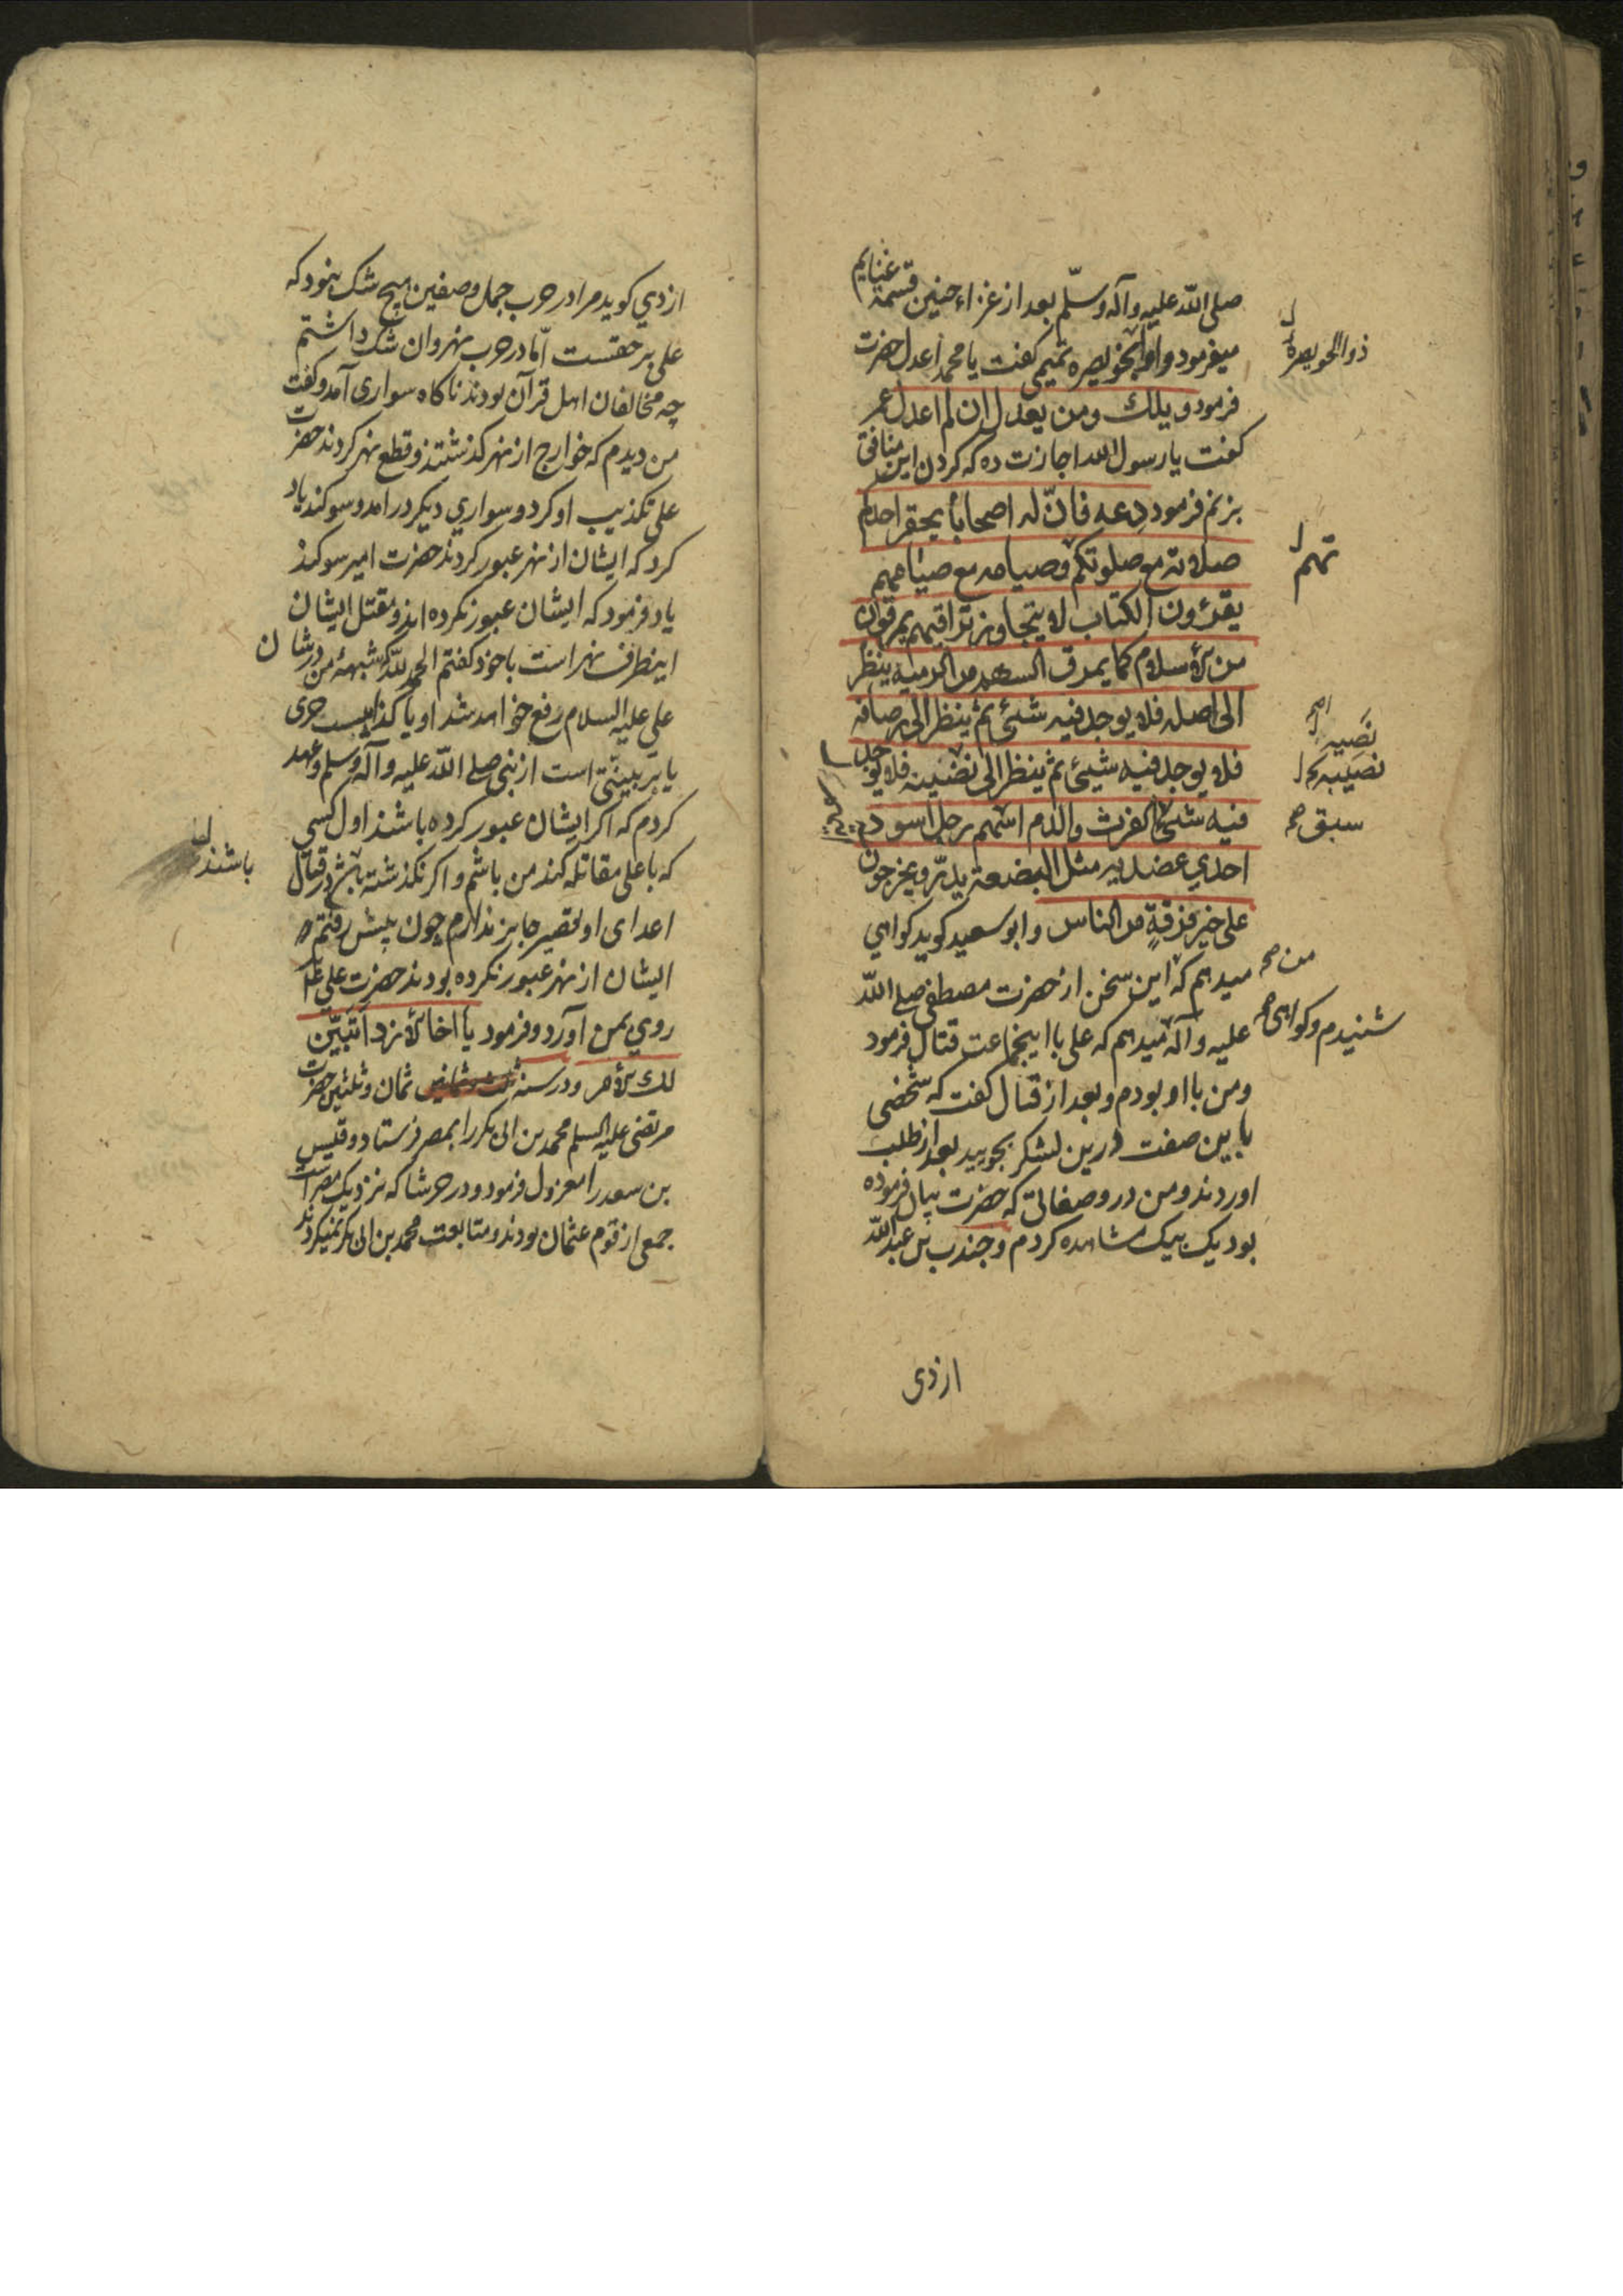 صلی اللّه علیه وآله وسلّم بعد از غزاء حنین قسمة غنایم
میفرمود و ابوالخویصره تمیمی کفت یا محمد اعدل حضرت
ذوالخویصرة
فرمود ویلك ومن یعدل ان لم اعدل عمر
کفت یا رسول الله اجازت ده که کردن این منافق
بزنم فرمود دعه فانّ له اصحاباً یحقر احدکم
صلاوته مع صلوتکم وصیامه مع صیامهم
تهم
یقرؤن الکتاب لا یتجاوز تراقیهم یمرقون
من الاسلام کما یمرق السهم من الرمیه ینظر
الی اصله فلا یوجد فیه شیئ ثم ینظر الی رصافه
نضیه
فلا یوجد فیه شیئ ثم ینظر الی نضیه فلا یوجد
فیه شیئ الفرث والدم اسمهم رجل اسود
سبق صح
احدی عضدیه مثل البضعة یدرّ ویخرجون
علی خیر فرقةٍ من الناس وابو سعید کوید کواهی
میدهم که این سخن از حضرت مصطفی صلی اللّه
من صح
علیه وآله میدهم که علی با اینجماعت قتال فرمود
شنیدم و کواهی صح
ومن با او بودم و بعد از قتال کفت که شخصی
باین صفت درین لشکر بجویید بعد از طلب
اوردند ومن درو صفاتی که حضرت بیان فرموده
بود یک بیک مشاهده کردم وجندب بن عبد اللّه
ازدی
ازدی کوید مرا در حرب جمل وصفین هیچ شک نبود که
علی بر حقست امّا در حرب نهروان شک داشتم
چه مخالفان اهل قرآن بودند ناکاه سواری آمد و کفت
من دیدم که خوارج از نهر کذشتند و قطع نهر کردند حضرت
علی تکذیب او کرد و سواری دیکر درامد و سوکند یاد
کرد که ایشان از نهر عبور کردند حضرت امیر سوکند
یاد فرمود که ایشان عبور نکرده اند و مقتل ایشان
اینطرف نهر است با خود کفتم الحمد للّه که شبهۀ من در شان
علی علیه السلام رفع خواهد شد او یا کذابیست جری
یا بر بینتی است از نبی صلی اللّه علیه وآله وسلم وعهد
کردم که اکر ایشان عبور کرده باشند اول کسی
که با علی مقاتله کند من باشم و اکر نکذشته باشند در قتال
باشند
اعدای او تقصیر جایز ندارم چون پیش رفتم
ایشان از نهر عبور نکرده بودند حضرت علی
روی بمن آورد و فرمود یا اخا الازد أتبیّن
لك الامر ودر سنه ثمان وثلثین حضرت
مرتضی علیه السلم محمد بن ابی بکر را بمصر فرستاد و قیس
بن سعد را معزول فرمود و در حرشا که نزدیک مصر است
جمعی از قوم عثمان بودند و متابعت محمد بن ابی بکر نمیکردند